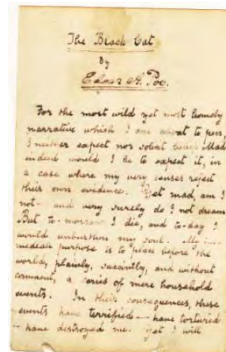 The Black Cat
By
Edgar A. Poe.
For the most wild yet most homely
narrative which I am about to pen,
I neither expect nor solicit belief. Mad
indeed would I be to expect it, in
a case where my very senses reject
their own evidence. Yet mad am I
not - and very surely do I not dream.
But to-morrow I die, and to-day I
would unburthen my soul. My
purpose is to place before the
world, plainly, succinctly, and without
comment, a series of mere household
events. In their consequences, these
events have terrified - have tortured
- have destroyed me. Yet I will